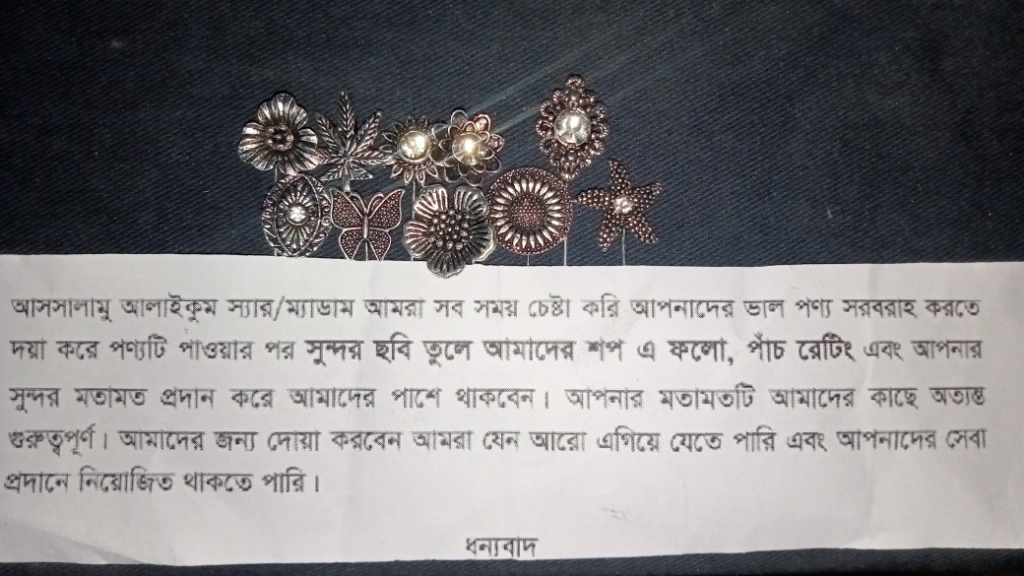 আসসালামু আলাইকুম স্যার/ম্যাডাম আমরা সব সময় চেষ্টা করি আপনাদের ভাল পণ্য সরবরাহ করতে
দয়া করে পণ্যটি পাওয়ার পর সুন্দর ছবি তুলে আমাদের শপ এ ফলো, পাঁচ রেটিং এবং আপনার
সুন্দর মতামত প্রদান করে আমাদের পাশে থাকবেন। আপনার মতামতটি আমাদের কাছে অত্যন্ত
গুরুত্বপূর্ণ। আমাদের জন্য দোয়া করবেন আমরা যেন আরো এগিয়ে যেতে পারি এবং আপনাদের সেবা
প্রদানে নিয়োজিত থাকতে পারি।
ধন্যবাদ